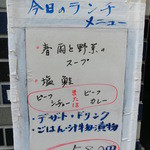 今日のランチ
メニュー
・春雨と野菜の
スープ
・塩鮭
ビーフ
シチュー
または
ビーフ
カレー
・デザート・ドリンク
・ごはん・汁・漬物